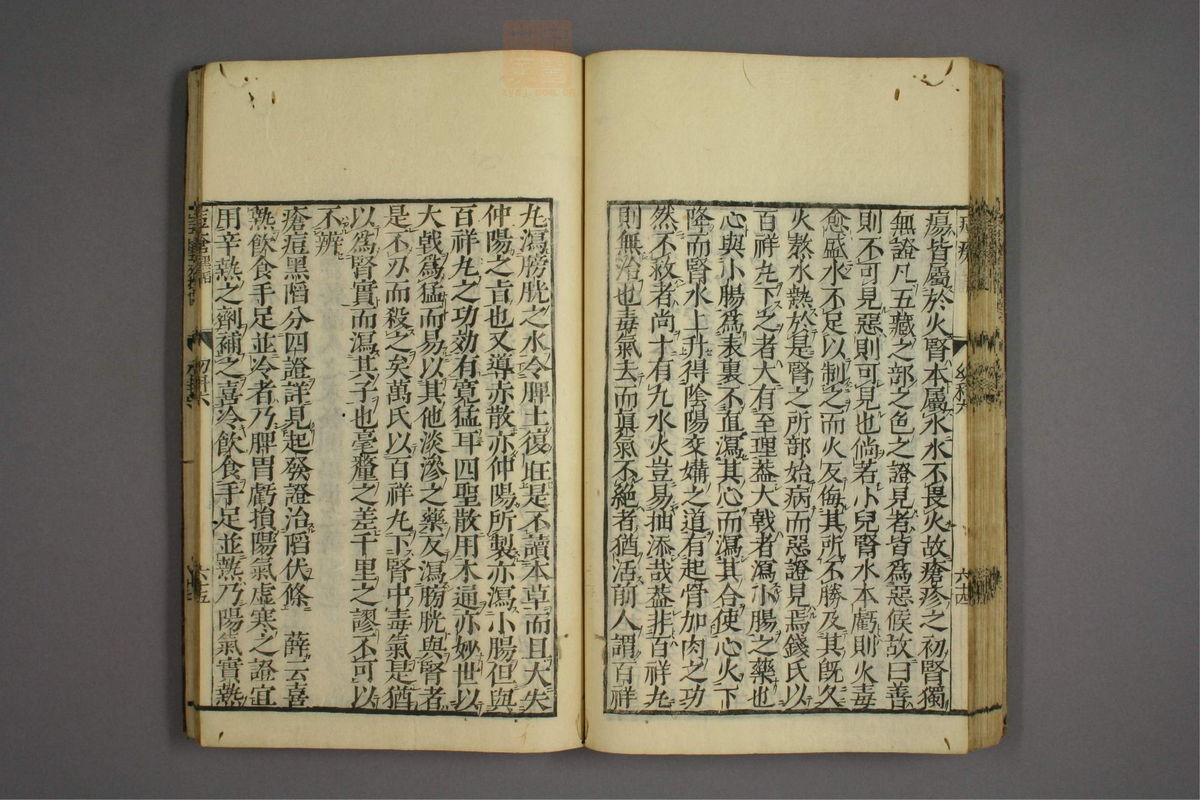 瘍皆屬於火腎本屬水水不畏火故瘡疹之初腎獨
無證凡五藏之部之色之證見者皆爲惡候故曰善
則不可見惡則可見也倘若小兒腎水本虧則火毒
愈盛水不足以制之而火反侮其所不勝及其旣久
火熬水熱於是腎之所部始病而惡證見焉錢氏以
百祥丸下之者大有至理葢大戟者瀉小腸之藥也
心與小腸爲表裏不直瀉其心而瀉其合使心火下
降而腎水上升得陰陽交媾之道有起骨加肉之功
然不救者尚十有九水火豈易抽添哉葢非百祥丸
則無治也毒氣去而眞氣不絕者猶活前人謂百祥
丸瀉膀胱之水令脾土復旺是不讀本草而且大失
仲陽之旨也又導赤散亦仲陽所製亦瀉小腸但與
百祥丸之功効有寬猛耳四聖散用木通亦妙世以
大戟爲猛而易以其他淡滲之藥反瀉膀胱與腎者
是不刃而殺之矣萬氏以百祥丸下腎中毒氣是猶
以爲腎實而瀉其子也毫釐之差千里之謬不可以
不辨
瘡痘黑陷分四證詳見起發證治陷伏條 薛云喜
熱飲食手足並冷者乃脾胃虧損陽氣虛寒之證宜
用辛熱之劑補之喜冷飲食手足並熱乃陽氣實熱